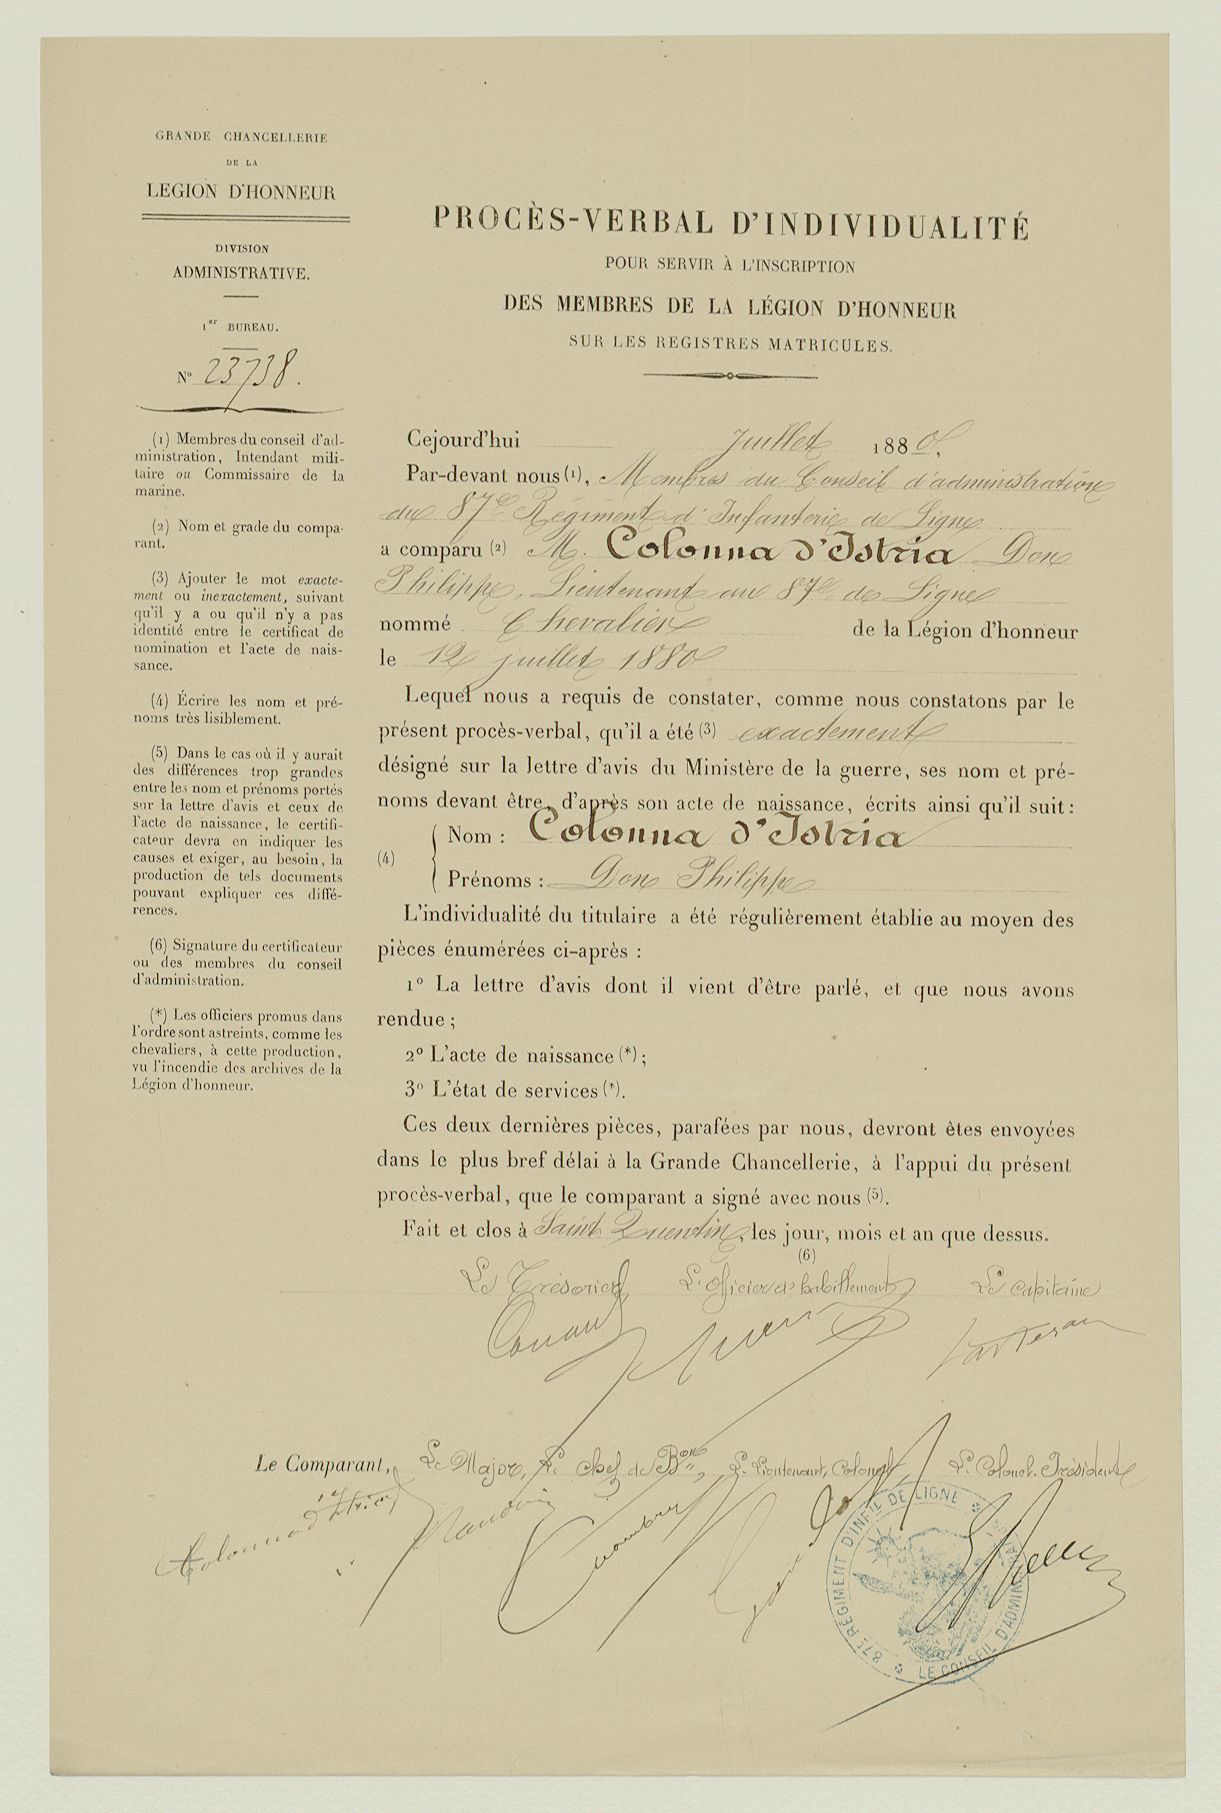 GRANDE CHANCELLERIE
DE LA
LEGION D'HONNEUR
DIVISION
ADMINISTRATIVE.
1er BUREAU.
N° 23738.
(1) Membres du conseil d'ad-
ministration, Intendant mili-
taire ou Commissaire de la
marine.
(2) Nom et grade du compa-
rant.
(3) Ajouter le mot exacte-
ment ou inexactement, suivant
qu'il y a ou qu'il n'y a pas
identité entre le certificat de
nomination et l'acte de nais-
sance.
(4) Écrire les nom et pré-
noms très lisiblement.
(5) Dans le cas où il y aurait
des différences trop grandes
entre les nom et prénoms portés
sur la lettre d'avis et ceux de
l'acte de naissance, le certifi-
cateur devra en indiquer les
causes et exiger, au besoin, la
production de tels documents
pouvant expliquer ces diffé-
rences.
(6) Signature du certificateur
ou des membres du conseil
d'administration.
(*) Les officiers promus dans
l'ordre sont astreints, comme les
chevaliers, à cette production,
vu l'incendie des archives de la
Légion d'honneur.
PROCÈS-VERBAL D'INDIVIDUALITÉ
POUR SERVIR À L'INSCRIPTION
DES MEMBRES DE LA LÉGION D'HONNEUR
SUR LES REGISTRES MATRICULES.
Cejourd'hui Juillet 1880,
Par-devant nous (1), Membres du Conseil d'administration
du 87e Régiment d'Infanterie de Ligne
a comparu (2) M. Colonna d'Istria Don
Philippe, Lieutenant au 87e de Ligne
nommé Chevalier de la Légion d'honneur
le 12 juillet 1880
Lequel nous a requis de constater, comme nous constatons par le
présent procès-verbal, qu'il a été (3) exactement
désigné sur la lettre d'avis du Ministère de la guerre, ses nom et pré-
noms devant être, d'après son acte de naissance, écrits ainsi qu'il suit :
Nom : Colonna d'Istria
(4)
Prénoms : Don Philippe
L'individualité du titulaire a été régulièrement établie au moyen des
pièces énumérées ci-après :
1° La lettre d'avis dont il vient d'être parlé, et que nous avons
rendue ;
2° L'acte de naissance (*) ;
3° L'état de services (*).
Ces deux dernières pièces, parafées par nous, devront êtes envoyées
dans le plus bref délai à la Grande Chancellerie, à l'appui du présent
procès-verbal, que le comparant a signé avec nous (5).
Fait et clos à Saint Quentin, les jour, mois et an que dessus.
(6)
Le Trésorier, L'officier d'habillement Le Capitaine
Le Comparant, Le Major, Le Chef de Bon, Le Lieutenant Colonel, Le Colonel Président
Colonna d'Istria
87E RÉGIMENT D'INFIE DE LIGNE
LE CONSEIL D'ADMINISTRATION